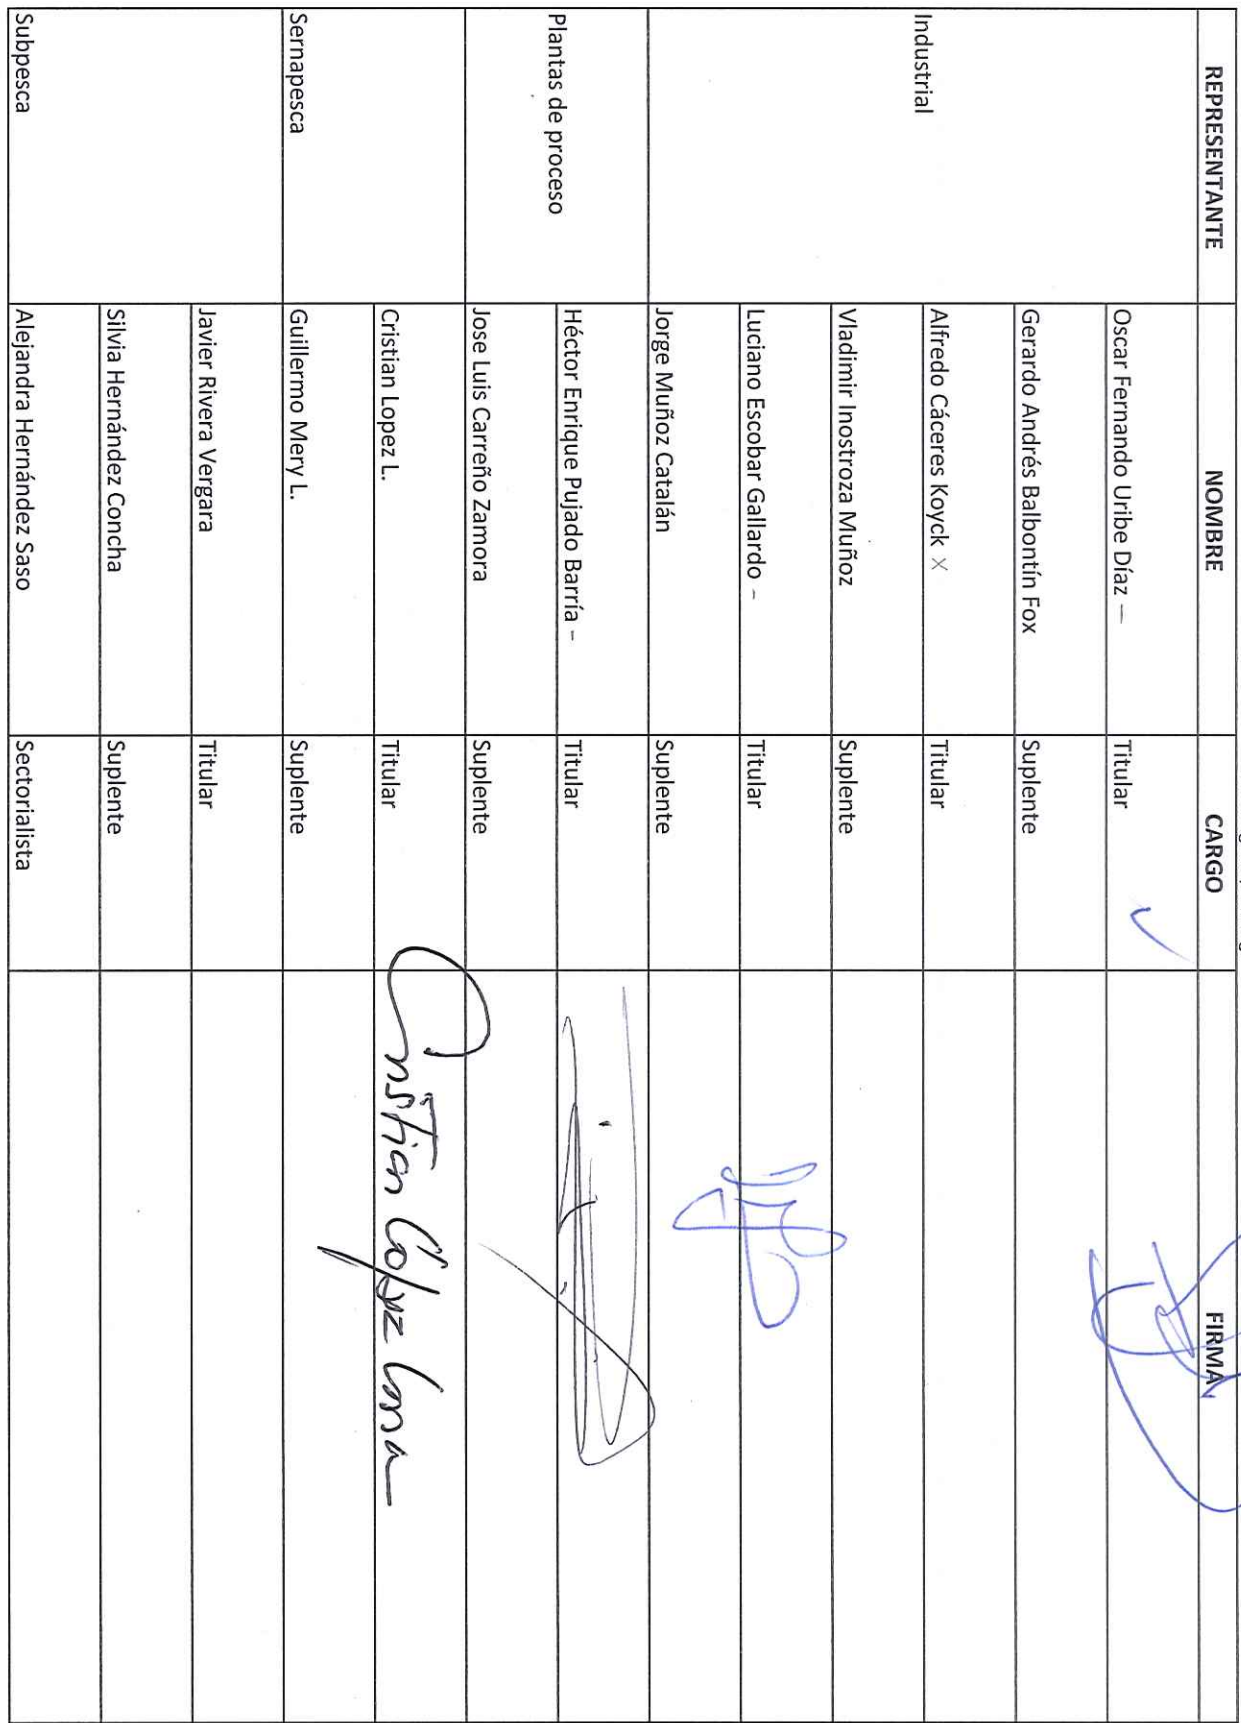 REPRESENTANTE NOMBRE CARGO FIRMA
Oscar Fernando Uribe Díaz — Titular
Gerardo Andrés Balbontín Fox Suplente
Industrial Alfredo Cáceres Koyck X Titular
Vladimir Inostroza Muñoz Suplente
Luciano Escobar Gallardo - Titular
Jorge Muñoz Catalán Suplente
Plantas de proceso Héctor Enrique Pujado Barría - Titular
Jose Luis Carreño Zamora Suplente
Cristian Lopez L. Titular Cristian López
Sernapesca Guillermo Mery L. Suplente
Javier Rivera Vergara Titular
Silvia Hernández Concha Suplente
Subpesca Alejandra Hernández Saso Sectorialista